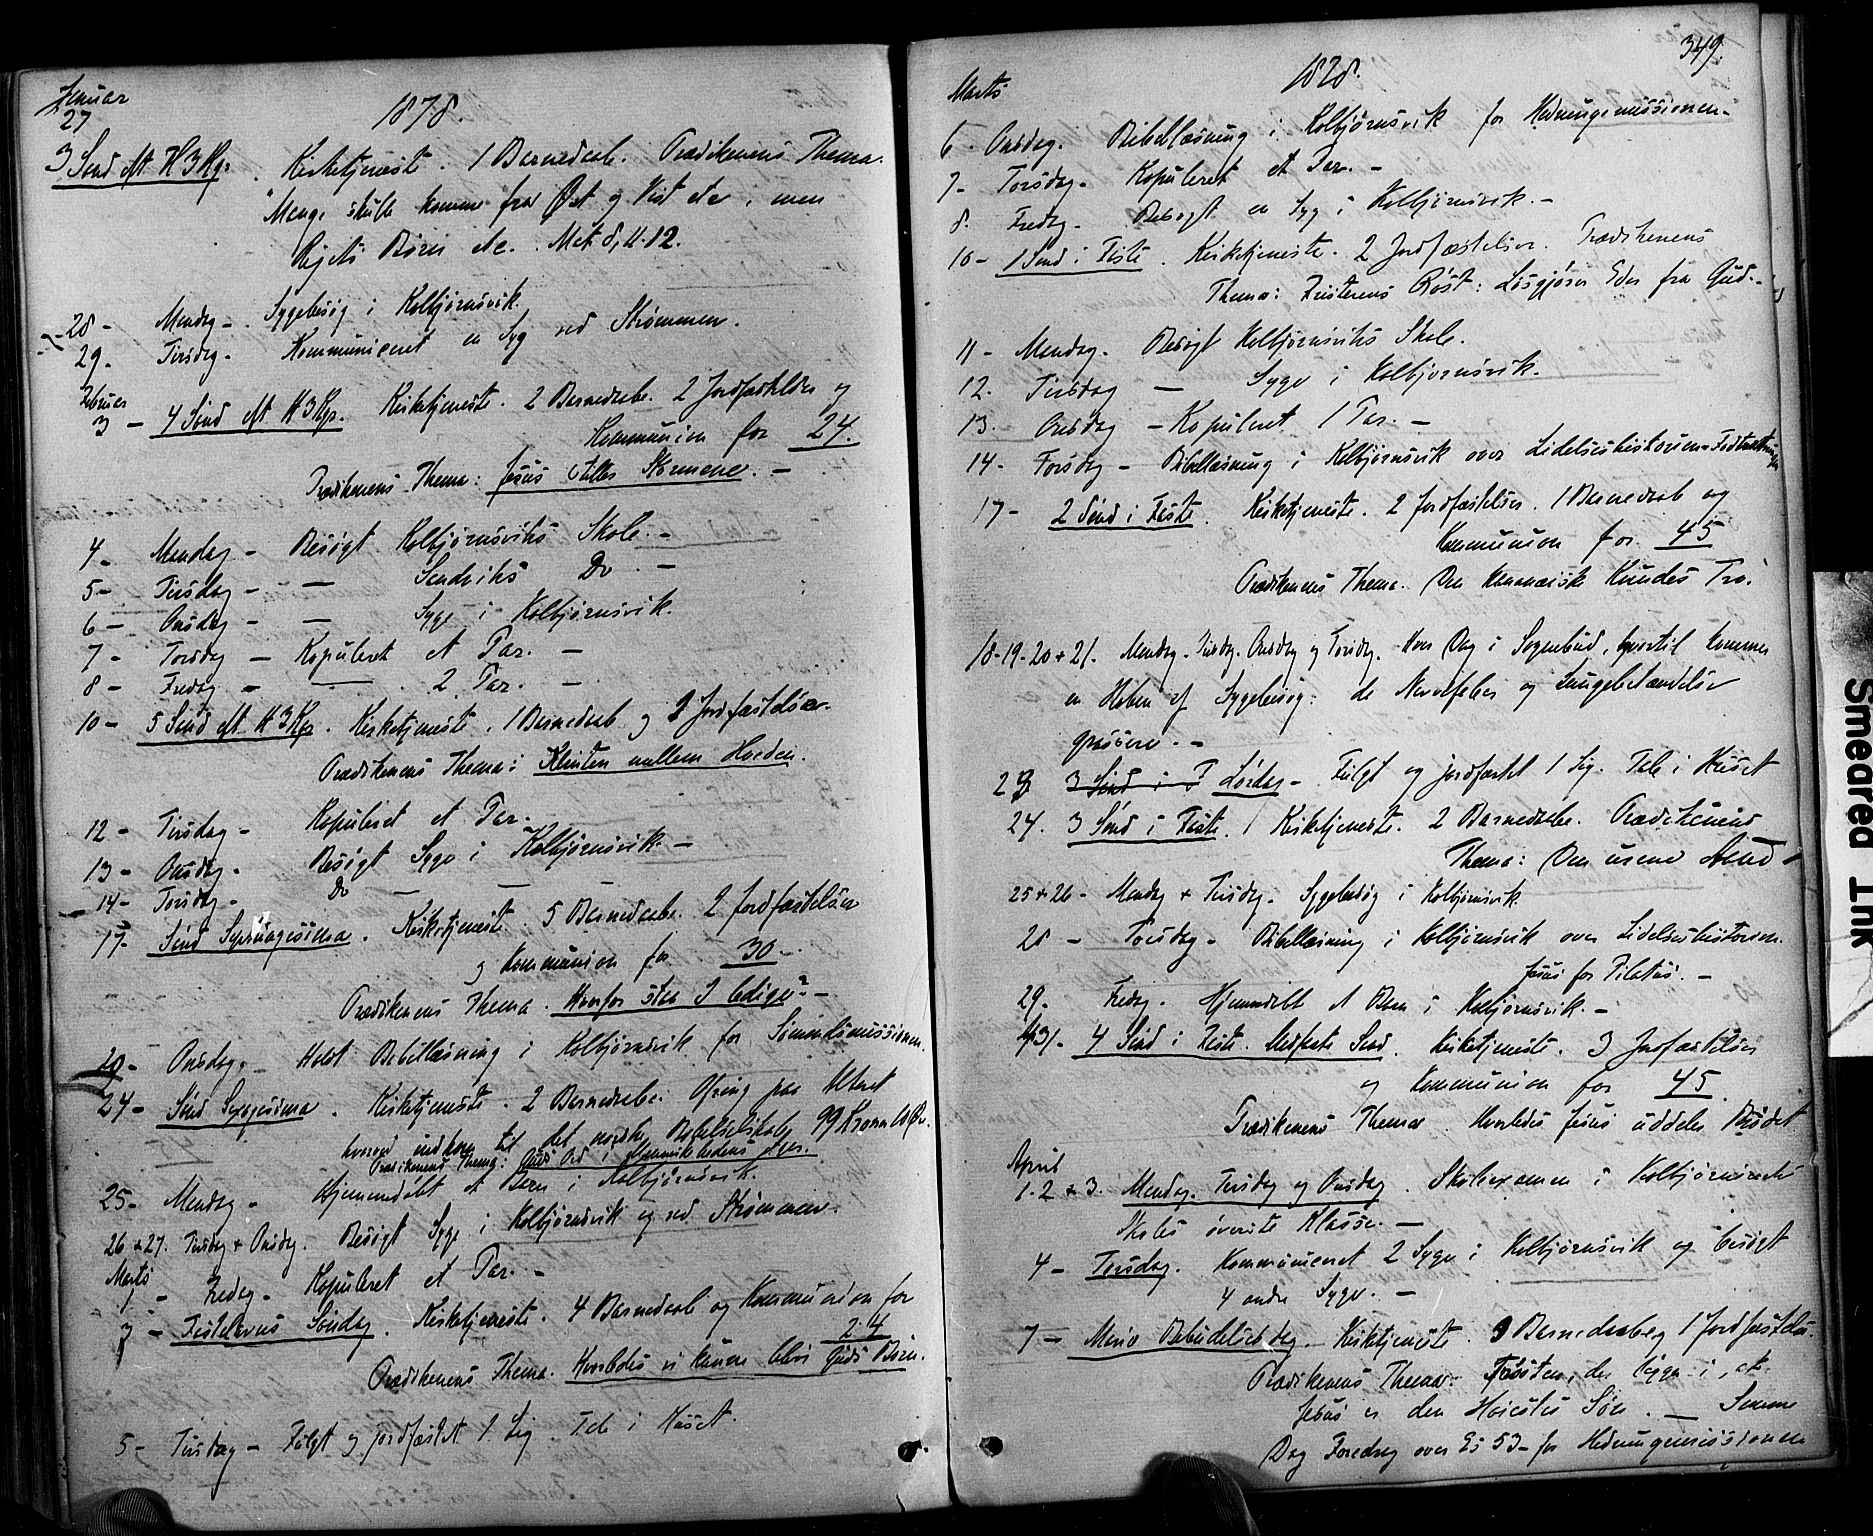 Januar
27
1878.
3 Sønd eft H 3 Kgr. Kirketjeneste. 1 Barnedaab. Prædikenens Thema
"Mange skulle komme fra Øst og Vest etc, men
Rigets Børn etc. Mat. 8, 11.12.
28 - Mandag - Sygebesøg i Kolbjørnsvik.
29. Tirsdag - Kommuniceret en Syg ved Strømmen.
Februar
3 - 4 Sønd eft H 3 Kgr. Kirketjeneste. 2 Barnedaabe. 2 Jordfæstelser og
Kommunion for 24.
Prædikenens Thema: Jesus stiller Stormene. -
4 - Mandag - Besøgt Kolbjørnsviks Skole. -
5 - Tirsdag - — Sandviks Do - -
6 - Onsdag - — Syge i Kolbjørnsvik.
7 - Torsdag - Kopuleret et Par. -
8 - Fredag - — 2 Par. -
10 - 5 Sønd eft H 3 Kgr. Kirketjeneste. 1 Barnedaab og 2 Jordfæstelser.
Prædikenens Thema: Klinten mellem Hveden.
12 - Tirsdag - Kopuleret et Par.
13 - Onsdag. Besøgt Syge i Kolbjørnsvik. -
14 - Torsdag - Do — —
17 - Sønd Septuagesima. Kirketjeneste. 5 Barnedaabe. 2 Jordfæstelser
og Kommunion for 30 -
Prædikenens Thema. Hvorfor staa I ledige? -
20 - Onsdag. - Holdt Bibellæsning i Kolbjørnsvik for Sømandsmissionen.
24 - Sønd Sexagesima. Kirketjeneste. 2 Barnedaabe. Ofring paa Alteret
hvorved indkom til det norske Bibelselskab 99 Kroner 10 Øre.
Prædikenens Thema: Guds Ord i Menneskehedens Ager.
25 - Mandag - Hjemmedøbt et Barn i Kolbjørnsvik.
26 + 27. Tirsdag + Onsdag. Besøgt Syge i Kolbjørnsvik og ved Strømmen.
Marts
1 - Fredag - Kopuleret et Par. -
3 - Fastelavns Søndag. Kirketjeneste. 4 Barnedaab og Kommunion for
24
Prædikenens Thema. Hvorledes vi kunne blive Guds Børn.
5 - Tirsdag - Fulgt og jordfæstet 1 Lig. Tale i Huset.
349.
1878.
Marts
6 - Onsdag. Bibellæsning i Kolbjørnsvik for Hedningemissionen -
7 - Torsdag - Kopuleret et Par. -
8. Fredag - Besøgt en Syg i Kolbjørnsvik. -
10 - 1 Sønd i Faste. Kirketjeneste. 2 Jordfæstelser. Prædikenens
Thema: Fristerens Røst: Løsgjører Eder fra Gud. -
11 - Mandag. Besøgt Kolbjørnsviks Skole.
12. Tirsdag — Syge i Kolbjørnsvik.
13. Onsdag - Kopuleret 1 Par. -
14 - Torsdag - Bibellæsning i Kolbjørnsvik over Lidelseshistorien
17 - 2 Sønd i Faste. Kirketjeneste. 2 Jordfæstelser. 1 Barnedaab og
Kommunion for 45
Prædikenens Thema. Den kananæisk Kvindes Tro.
18-19-20 + 21. Mandag. Tirsdag. Onsdag og Torsdag. Hver Dag i Sognebud, hvortil kommer
en Hoben af Sygebesøg: de Nervefeber og Lungebetændelser
grassere. -
23 3 Sønd i F Lørdag - Fulgt og jordfæstet 1 Lig. Tale i Huset
24. 3 Sønd i Faste. Kirketjeneste. 2 Barnedaabe. Prædikenens
Thema: Den urene Aand
25 + 26 - Mandag + Tirsdag. Sygebesøg i Kolbjørnsvik.
28 - Torsdag - Bibellæsning i Kolbjørnsvik over Lidelseshistorien
Jesus for Pilatus. -
29 - Fredag. Hjemmedøbt et Barn i Kolbjørnsvik. -
31 - 4 Sønd i Faste. Midfaste Sønd. Kirketjeneste. 3 Jordfæstelser
og Kommunion for 45.
Prædikenens Thema. Hvorledes Jesus uddeler Brødet
April
1. 2 + 3. Mandag. Tirsdag og Onsdag. Skoleexamen i Kolbjørnsviks
Skoles øverste Klasse. -
4 - Torsdag. Kommuniceret 2 Syge i Kolbjørnsvik og besøgt
4 andre Syge. -
7 - Mariæ Bebudelsesdag. Kirketjeneste. 3 Barnedaab og 1 Jordfæstelse.
Prædikenens Thema: Trøsten, der ligger i, at
Jesus er den Høiestes Søn. — Samme
Dag Foredrag over Es 53 - for Hedningemissionen
Smeared Ink